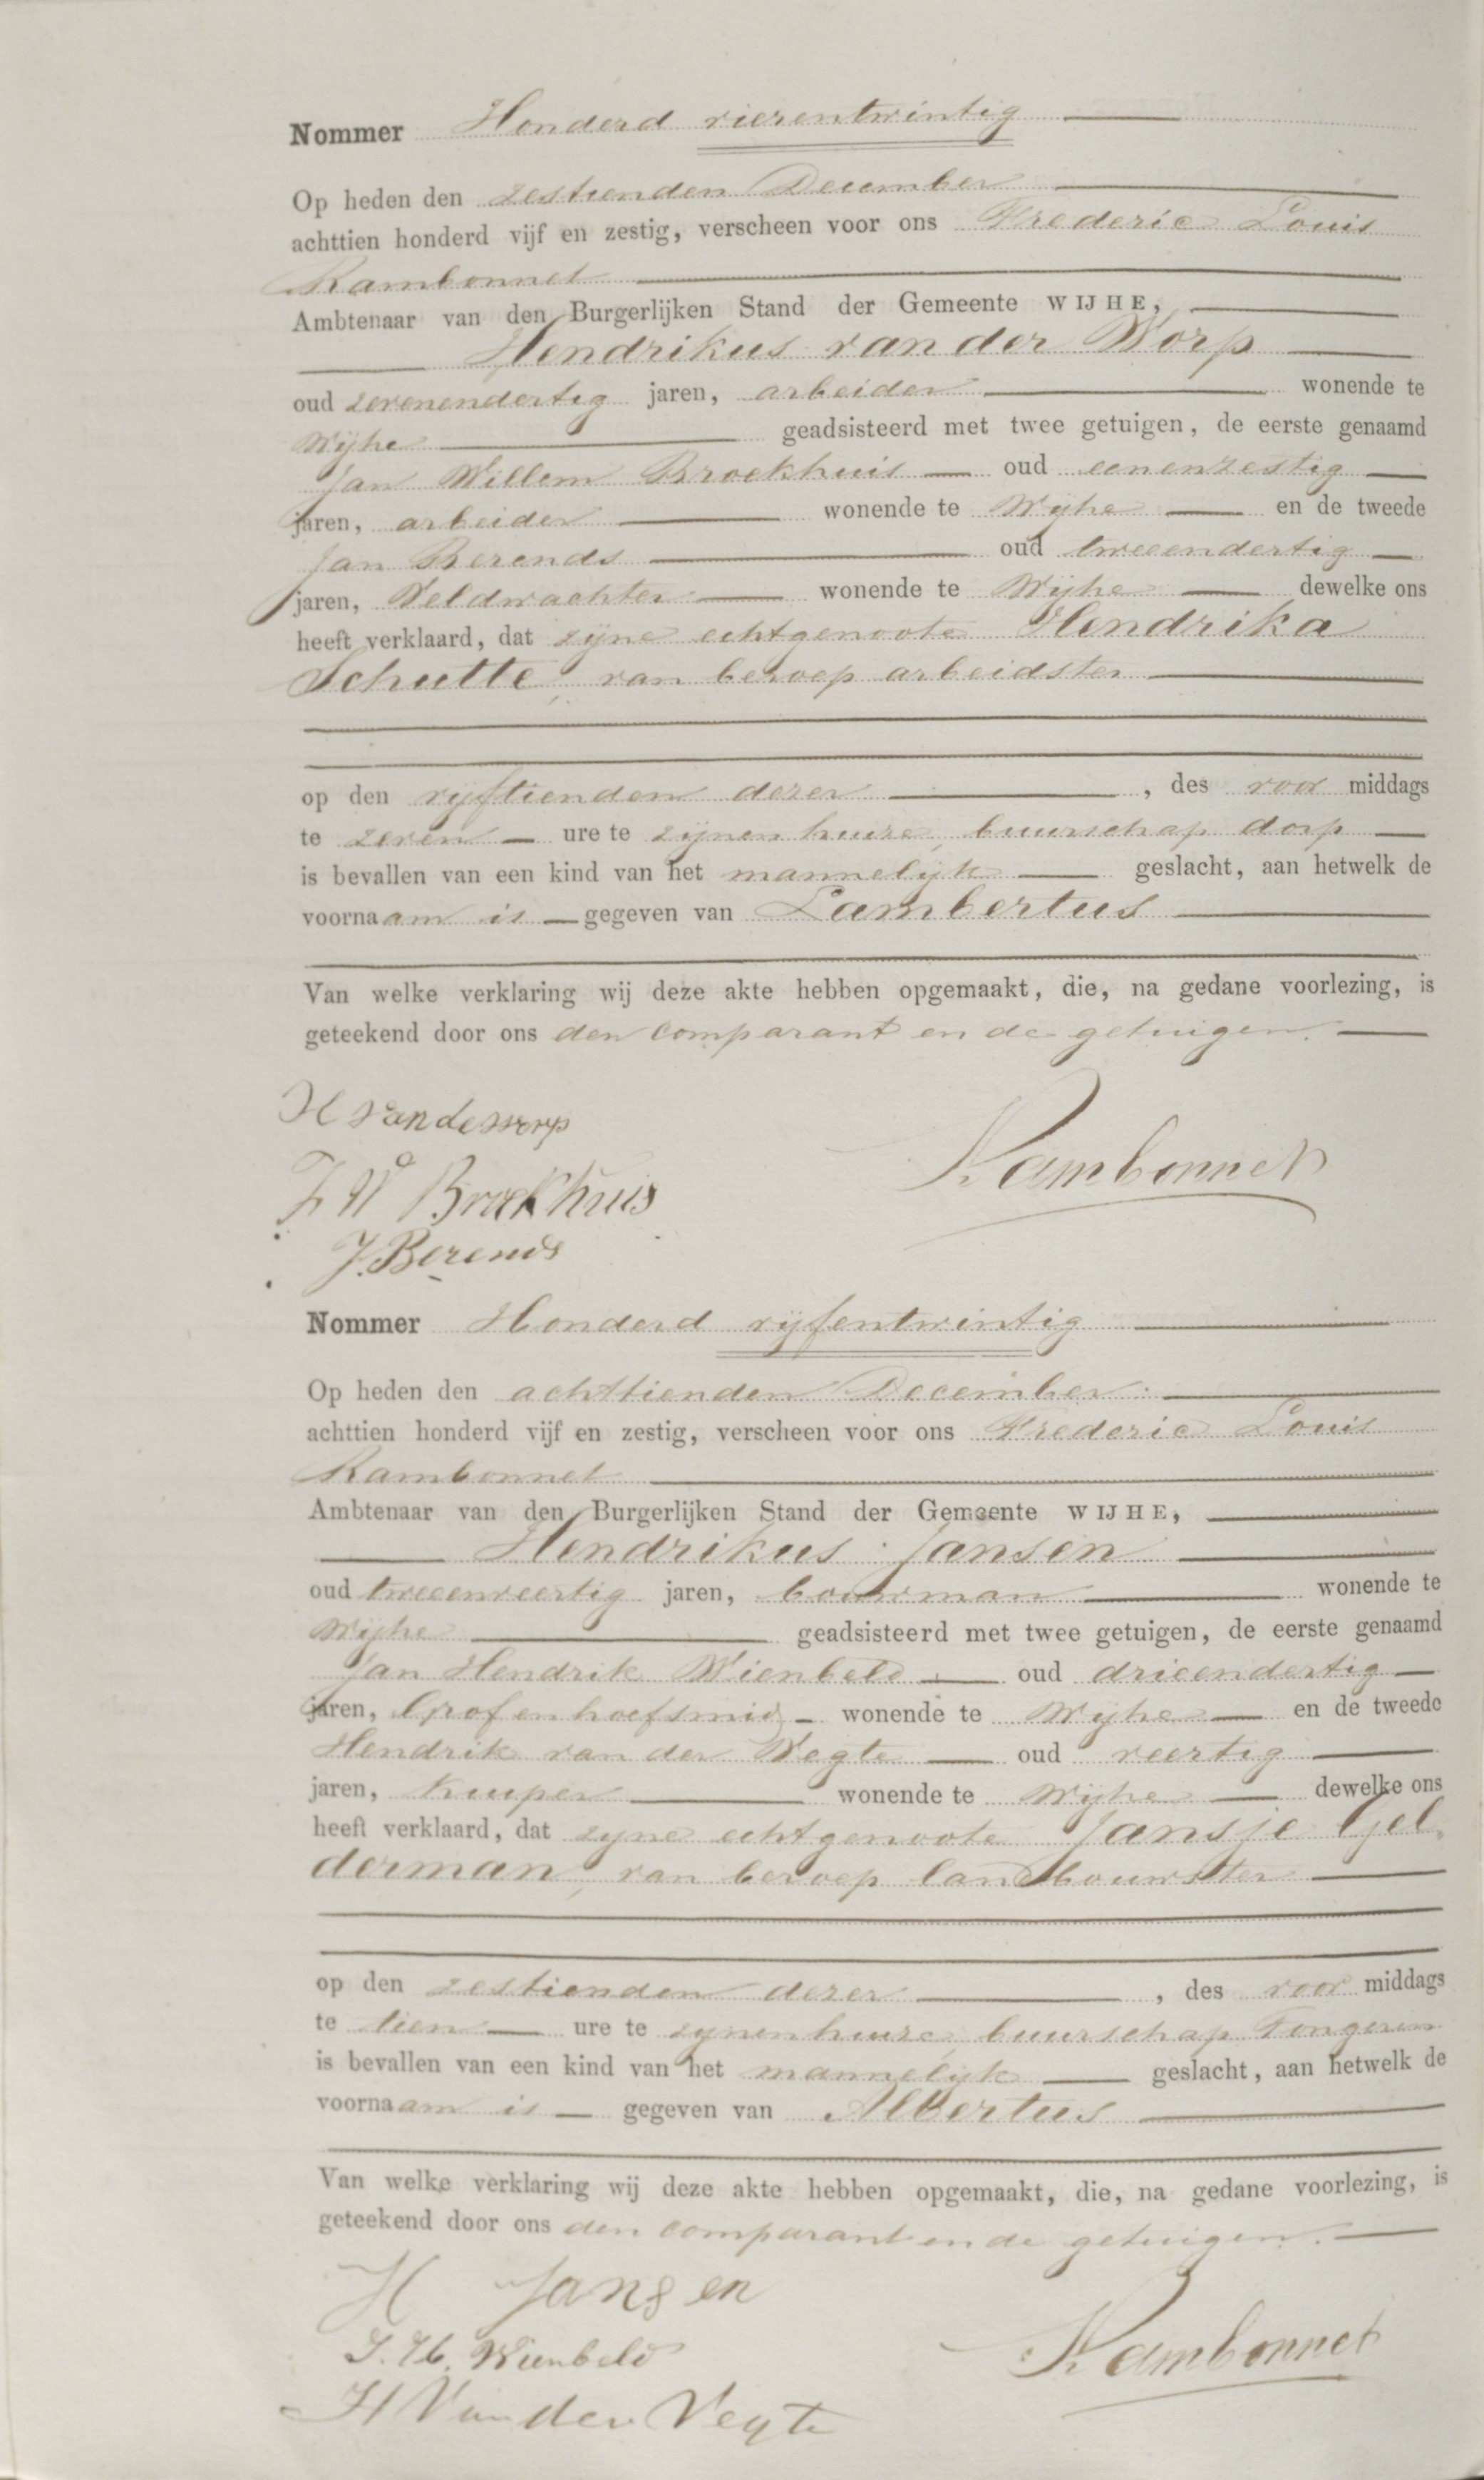 Nommer Honderd vierentwintig
Op heden den zestienden December
achttien honderd vijf en zestig, verscheen voor ons Frederic Louis
Rambonnet
Ambtenaar van den Burgerlijken Stand der Gemeente WIJHE,
Hendrikus van der Worp
oud zevenendertig jaren, arbeider wonende te
Wijhe geadsisteerd met twee getuigen, de eerste genaamd
Jan Willem Broekhuis oud eenenzestig
jaren, arbeider wonende te Wijhe en de tweede
Jan Berends oud tweeendertig
jaren, Veldwachter wonende te Wijhe dewelke ons
heeft verklaard, dat zijne echtgenoote Hendrika
Schutte, van beroep arbeidster
op den vijftienden dezer, des voor middags
te zeven ure te zijnen huize, buurschap dorp
is bevallen van een kind van het mannelijk geslacht, aan hetwelk de
voornaam is gegeven van Lambertus
Van welke verklaring wij deze akte hebben opgemaakt, die, na gedane voorlezing, is
geteekend door ons den comparant en de getuigen.
H van de worp
Rambonnet
J W Broekhuis
J. Berends
Nommer Honderd vijfentwintig
Op heden den achttienden December
achttien honderd vijf en zestig, verscheen voor ons Frederic Louis
Rambonnet
Ambtenaar van den Burgerlijken Stand der Gemeente WIJHE,
Hendrikus Jansen
oud tweeenveertig jaren, bouwman wonende te
Wijhe geadsisteerd met twee getuigen, de eerste genaamd
Jan Hendrik Wienbeld oud drieendertig
jaren, Grof en hoefsmid wonende te Wijhe en de tweede
Hendrik van der Vegte oud veertig
jaren, kuiper wonende te Wijhe dewelke ons
heeft verklaard, dat zijne echtgenoote Jansje Gel
derman, van beroep landbouwster
op den zestienden dezer, des voor middags
te tien ure te zijnen huize, buurschap Tongeren
is bevallen van een kind van het mannelijk geslacht, aan hetwelk de
voornaam is gegeven van Albertus
Van welke verklaring wij deze akte hebben opgemaakt, die, na gedane voorlezing, is
geteekend door ons den comparant en de getuigen.
H Jansen
J. H. Wienbeld
Rambonnet
H Van der Vegte